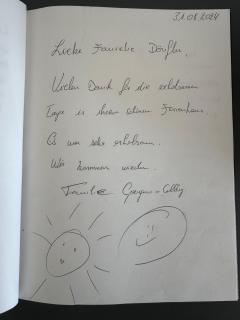 31.08.2024
Liebe Familie
Vielen Dank für die erholsamen
Tage in ihrem schönen Ferienhaus.
Es war sehr erholsam.
Wir kommen wieder.
Familie